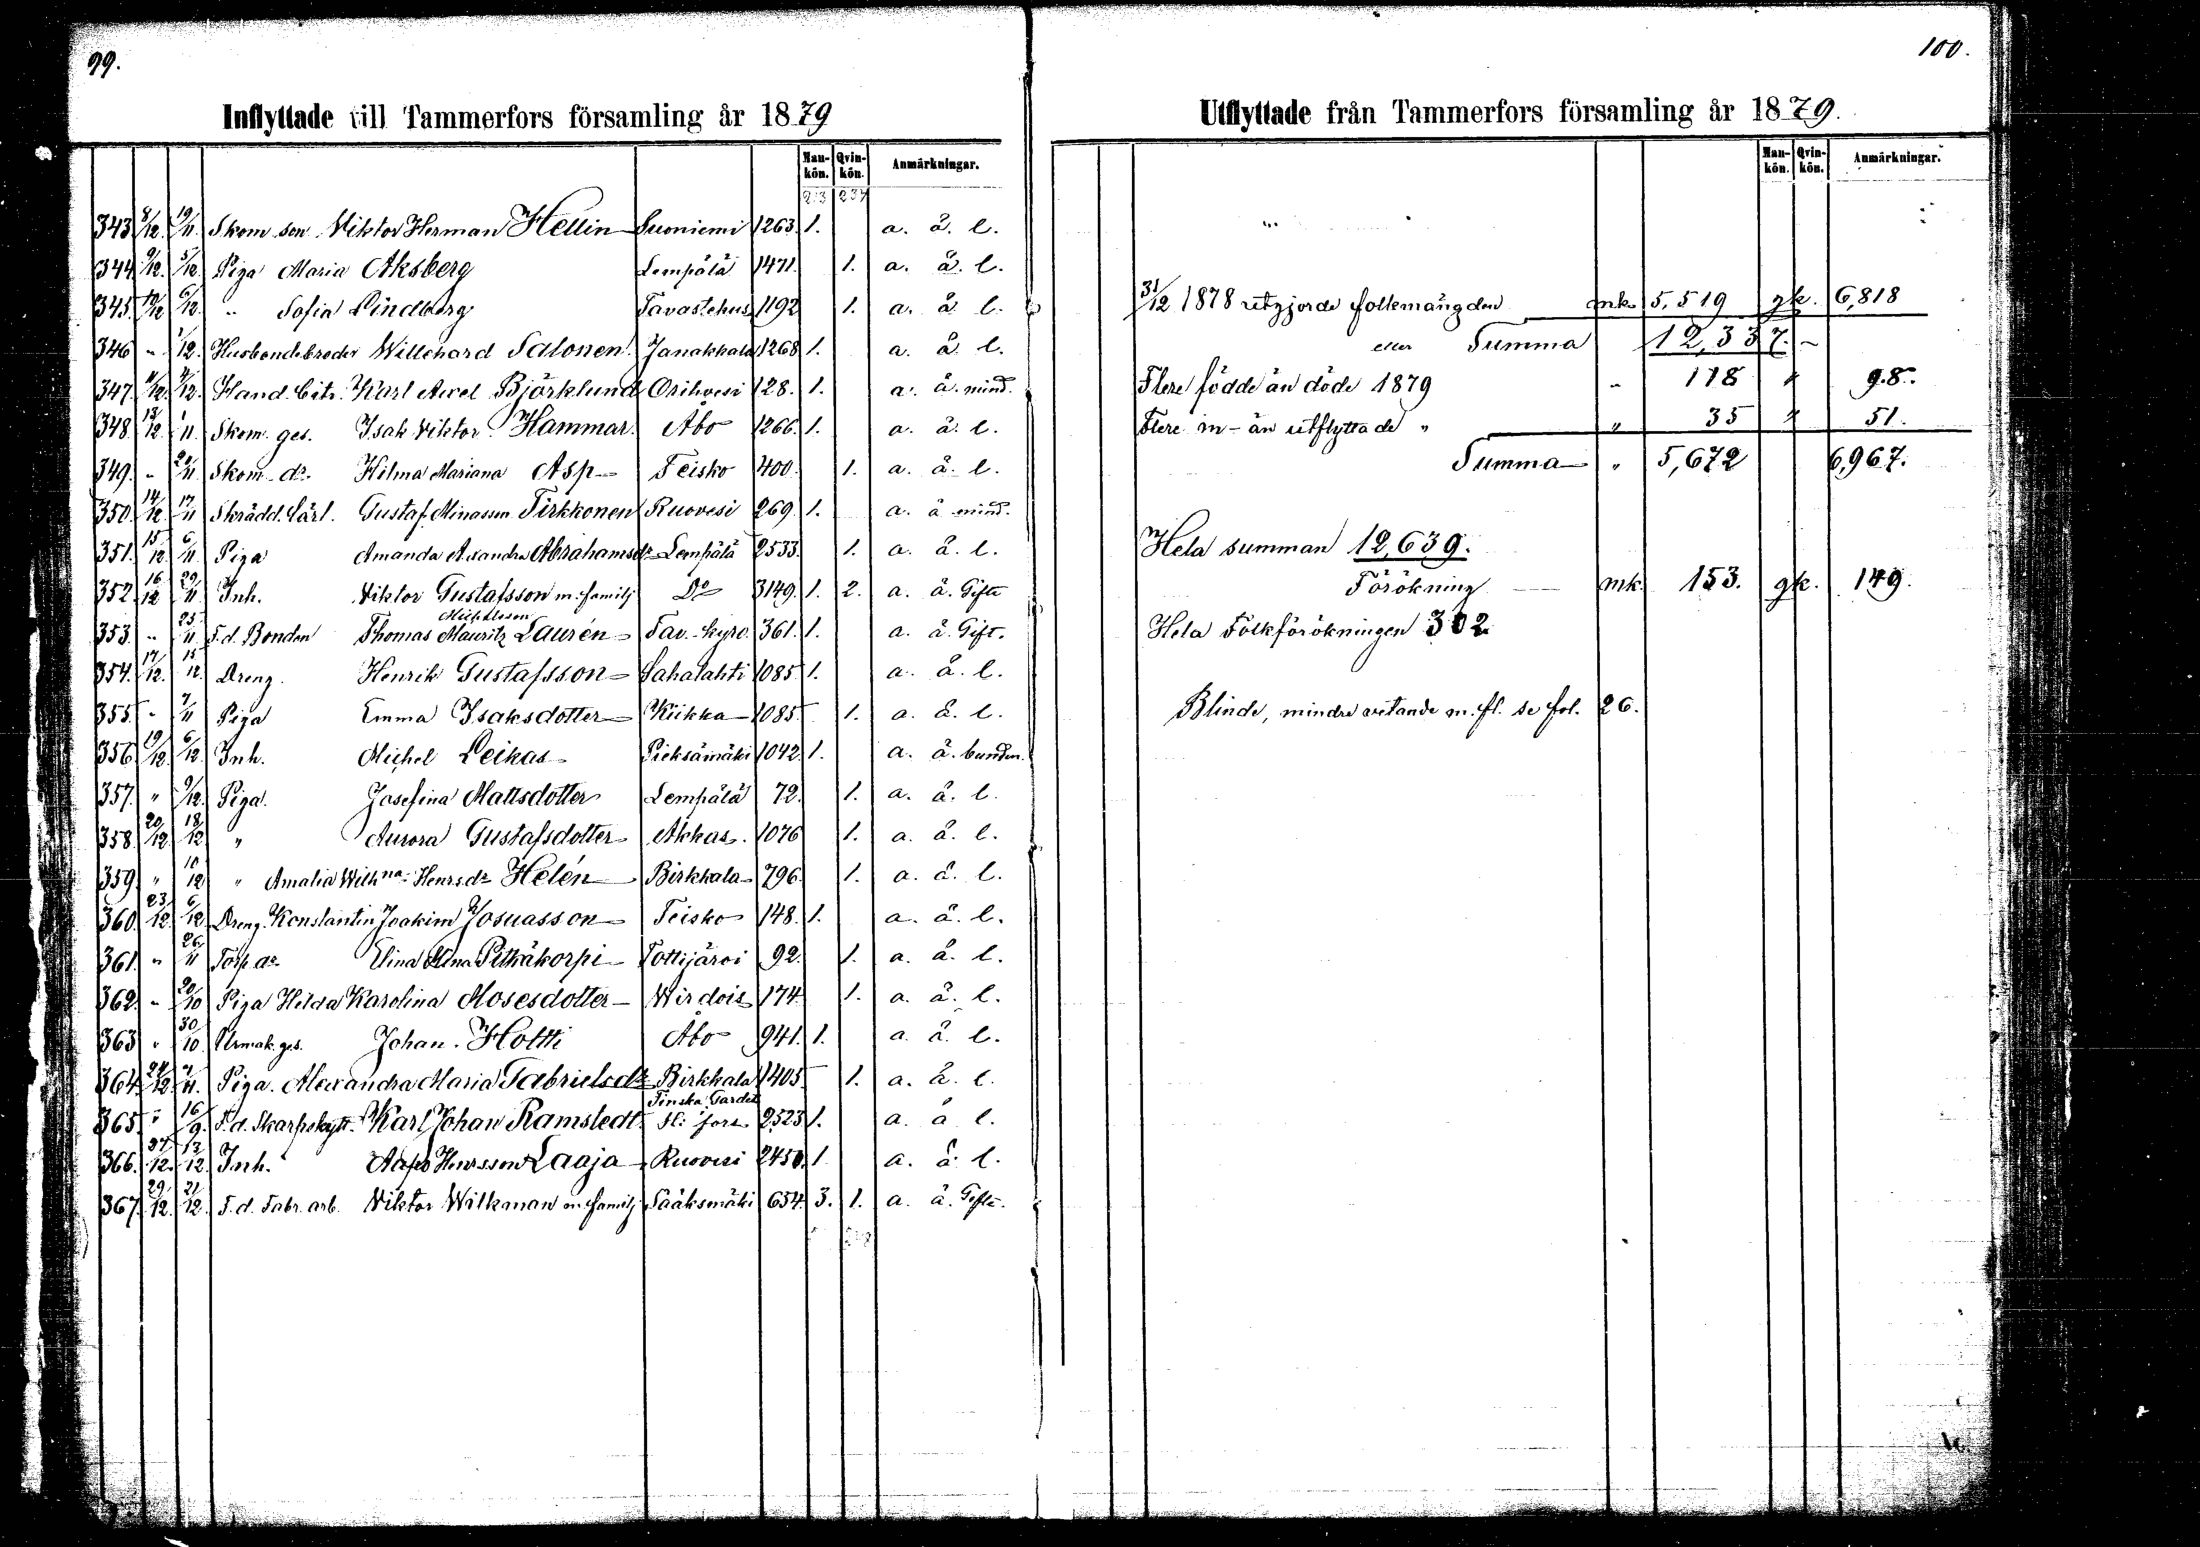 99.
Inflyttade till Tammerfors församling år 1879
Man-kön. Qvin-kön. Anmärkningar.
213 237
343. 8/12. 19/11. Skom. son Viktor Herman Hellin Suoniemi 1263. 1. a. å. l.
344. 9/12. 5/12. Piga Maria Aksberg Lempälä 1471. 1. a. å. l.
345. 10/12 6/12. " Sofia Lindberg Tavastehus 1192 1. a. å l.
346 " 1/12. Husbondebroder Willehard Salonen. Janakkala 1268 1. a. å. l.
347. 11/12. 4/12. Hand. bitr. Karl Axel Björklund Orihvesi 128. 1. a. å. mind.
348. 13/12. 1/11. Skom. ges. Isak Viktor Hammar. Åbo 1266. 1. a. å. l.
349. " 20/11. Skom. dr. Hilma Mariana Asp Teisko 400. 1. a. å. l.
350. 14/12. 17/11 Skrädd. lärl. Gustaf Minasson Tirkkonen Ruovesi 269. 1. a. å mind.
351. 15/12. 6/11. Piga Amanda Alexandra Abrahamsdr Lempälä 2533. 1. a. å. l.
352. 16/12 29/11. Inh. Viktor Gustafsson m. familj Do 3149. 1. 2. a. å. Gifte
353. " 25/11. F.d. Bonden Thomas Mauritz Michelsson Laurén Tav. kyro. 361. 1. a. å. Gift.
354. 17/12. 15/12. Dreng. Henrik Gustafsson Sahalahti 1085. 1. a. å. l.
355. " 7/11 Piga Emma Isaksdotter Kiikka 1085. 1. a. å. l.
356. 19/12. 6/12. Inh. Michel Leikas Pieksämäki 1042. 1. a. å. bunden.
357. " 9/12. Piga. Josefina Mattsdotter Lempälä 72. 1. a. å. l.
358. 20/12. 18/12 " Aurora Gustafsdotter Akkas. 1076 1. a. å. l.
359. " 10/12 " Amalia Wilhna Henrsdr Helén Birkkala 796. 1. a. å. l.
360. 23/12. 6/12. Dreng. Konstantin Joakim Josuasson Teisko 148. 1. a. å. l.
361. " 26/11 Torp. dr. Elina Pitkäkorpi Tottijärvi 92. 1. a. å. l.
362. " 20/10 Piga Hilda Karolina Mosesdotter Wirdois 174. 1. a. å. l.
363 " 30/10. Urmak. ges. Johan. Hotti Åbo 941. 1. a. å. l.
364. 24/12. 7/11. Piga. Alexandra Maria Gabrielsdr Birkkala 1405 1. a. å. l.
365. " 16/9. F.d. Skarpskytt. Karl Johan Ramstedt. Finska Gardet H:fors 2523. 1. a. å l.
366. 27/12. 13/12. Inh. Henrsson Laaja Ruovesi 2450. 1 a. å. l.
367. 29/12. 21/12. F.d. Fabr. arb. Viktor Wilkman m. familj Sääksmäki 654. 3. 1. a. å. Gifte.
100.
Utflyttade från Tammerfors församling år 1879.
Man-kön. Qvin-kön. Anmärkningar.
31/12 1878 utgjorde folkmängden mk. 5,519 qk. 6,818
eller Summa 12,337.
Flere födde än döde 1879 " 118 " 98.
Flere in- än utflyttade " " 35 " 51.
Summa " 5,672 6,967.
Hela summan 12,639.
Förökning mk. 153. qk. 149.
Hela Folkförökningen 302.
Blinde, mindre vetande m. fl. se fol. 26.